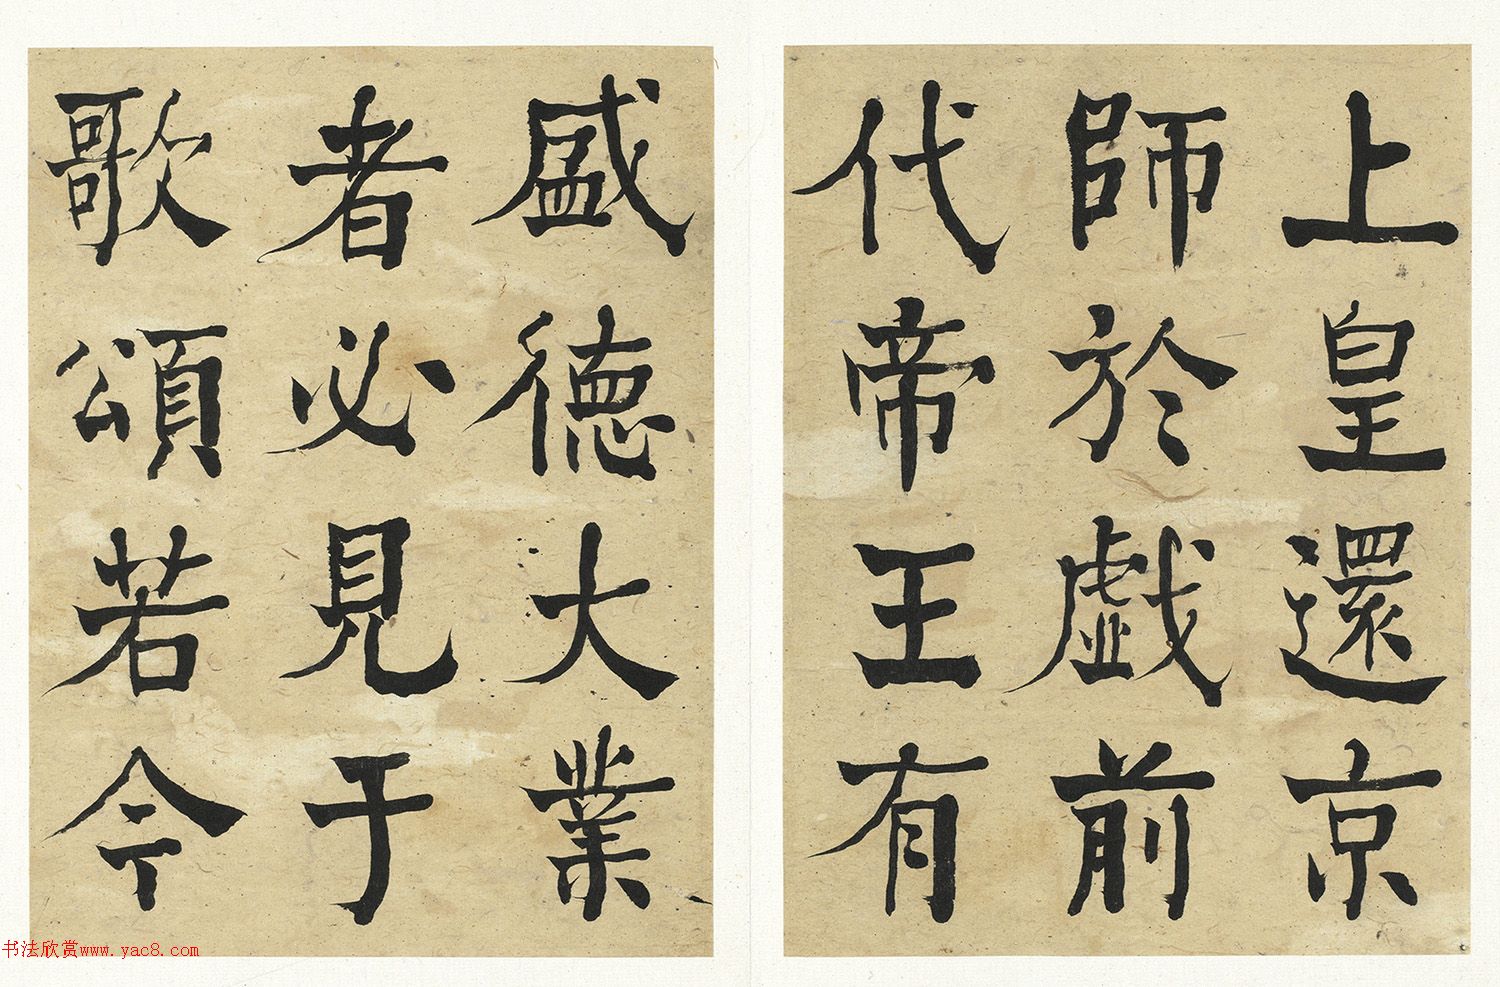 上皇還京
師於戯前
代帝王有
盛德大業
者必見于
歌頌若今
书法欣赏www.yac8.com